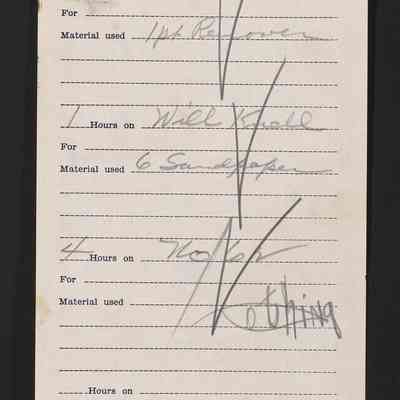 For
Material used 1 pt. Remover
1 Hours on Will Knoll
For
Material used 6 Sandpaper
4 Hours on
For
Material used
Hours on